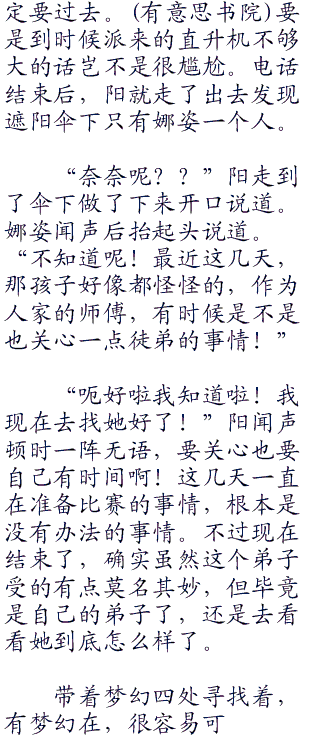 定要过去。(有意思书院)要
是到时候派来的直升机不够
大的话岂不是很尴尬。电话
结束后，阳就走了出去发现
遮阳伞下只有娜姿一个人。
“奈奈呢？？”阳走到
了伞下做了下来开口说道。
娜姿闻声后抬起头说道。
“不知道呢！最近这几天，
那孩子好像都怪怪的，作为
人家的师傅，有时候是不是
也关心一点徒弟的事情！”
“呃好啦我知道啦！我
现在去找她好了！”阳闻声
顿时一阵无语，要关心也要
自己有时间啊！这几天一直
在准备比赛的事情，根本是
没有办法的事情。不过现在
结束了，确实虽然这个弟子
受的有点莫名其妙，但毕竟
是自己的弟子了，还是去看
看她到底怎么样了。
带着梦幻四处寻找着，
有梦幻在，很容易可